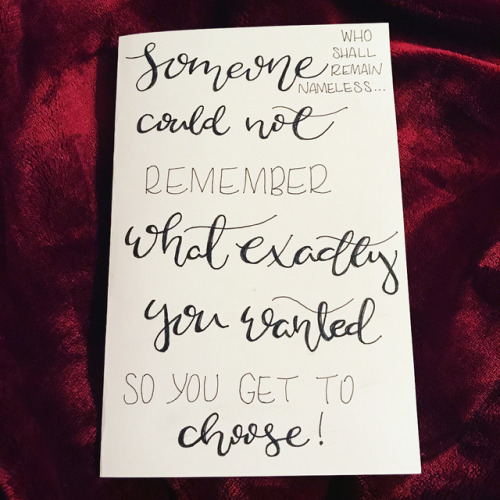 Someone
WHO
SHALL
REMAIN
NAMELESS...
could not
REMEMBER
what exactly
you wanted
SO YOU GET TO
choose!